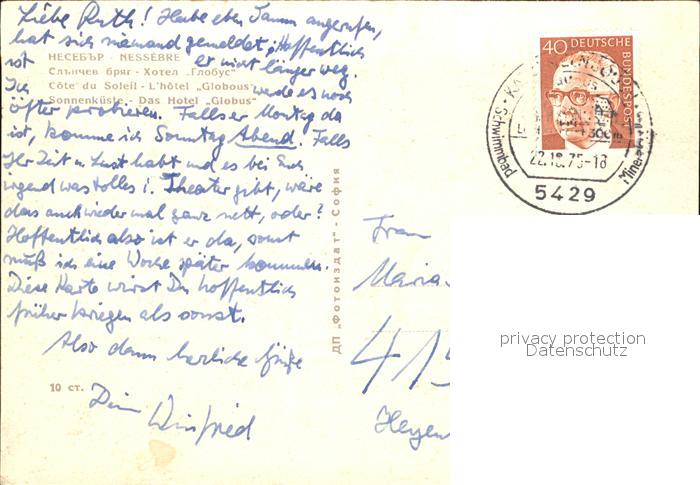 Liebe Ruth! Habe eben Samm angerufen,
hat sich niemand gemeldet. Hoffentlich
ist er nicht länger weg.
НЕСЕБЪР · NESSÈBRE
Слънчев бряг - Хотел „Глобус"
Côte du Soleil - L'hôtel „Globous"
Sonnenküste - Das Hotel „Globus"
Ich werde es noch
öfter probieren. Falls er Montag da
ist, komme ich Sonntag Abend. Falls
Ihr Zeit u. Lust habt und es bei Euch
irgend was tolles i. Theater gibt, wäre
das auch wieder mal ganz nett, oder?
Hoffentlich also ist er da, sonst
muß ich eine Woche später kommen.
Diese Karte wirst Du hoffentlich
früher kriegen als sonst.
Also dann herzliche Grüße
Dein Winfried
10 ст.
ДП „Фотоиздат" - София
40 DEUTSCHE
BUNDESPOST
22.10.75-18
5429
Schwimmbad
Frau
Maria
415
privacy protection
Datenschutz